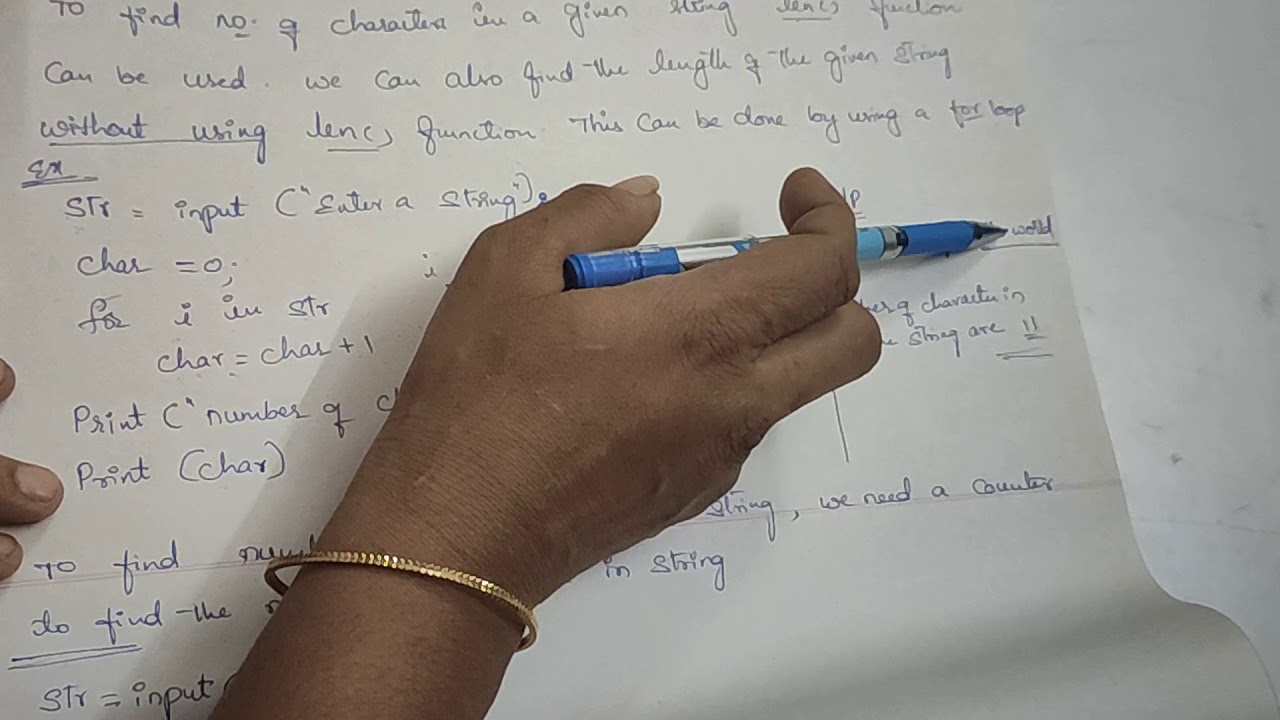 To find no. of characters in a given string len() function
can be used. we can also find the length of the given string
without using len() function. This can be done by using a for loop
Ex
Str = input ("Enter a string");
char = 0;
for i in str
char = char + 1
Print (" number of
Print (char)
world
of character in
string are 11
To find
string, we need a counter
to find the
in string
Str = input (